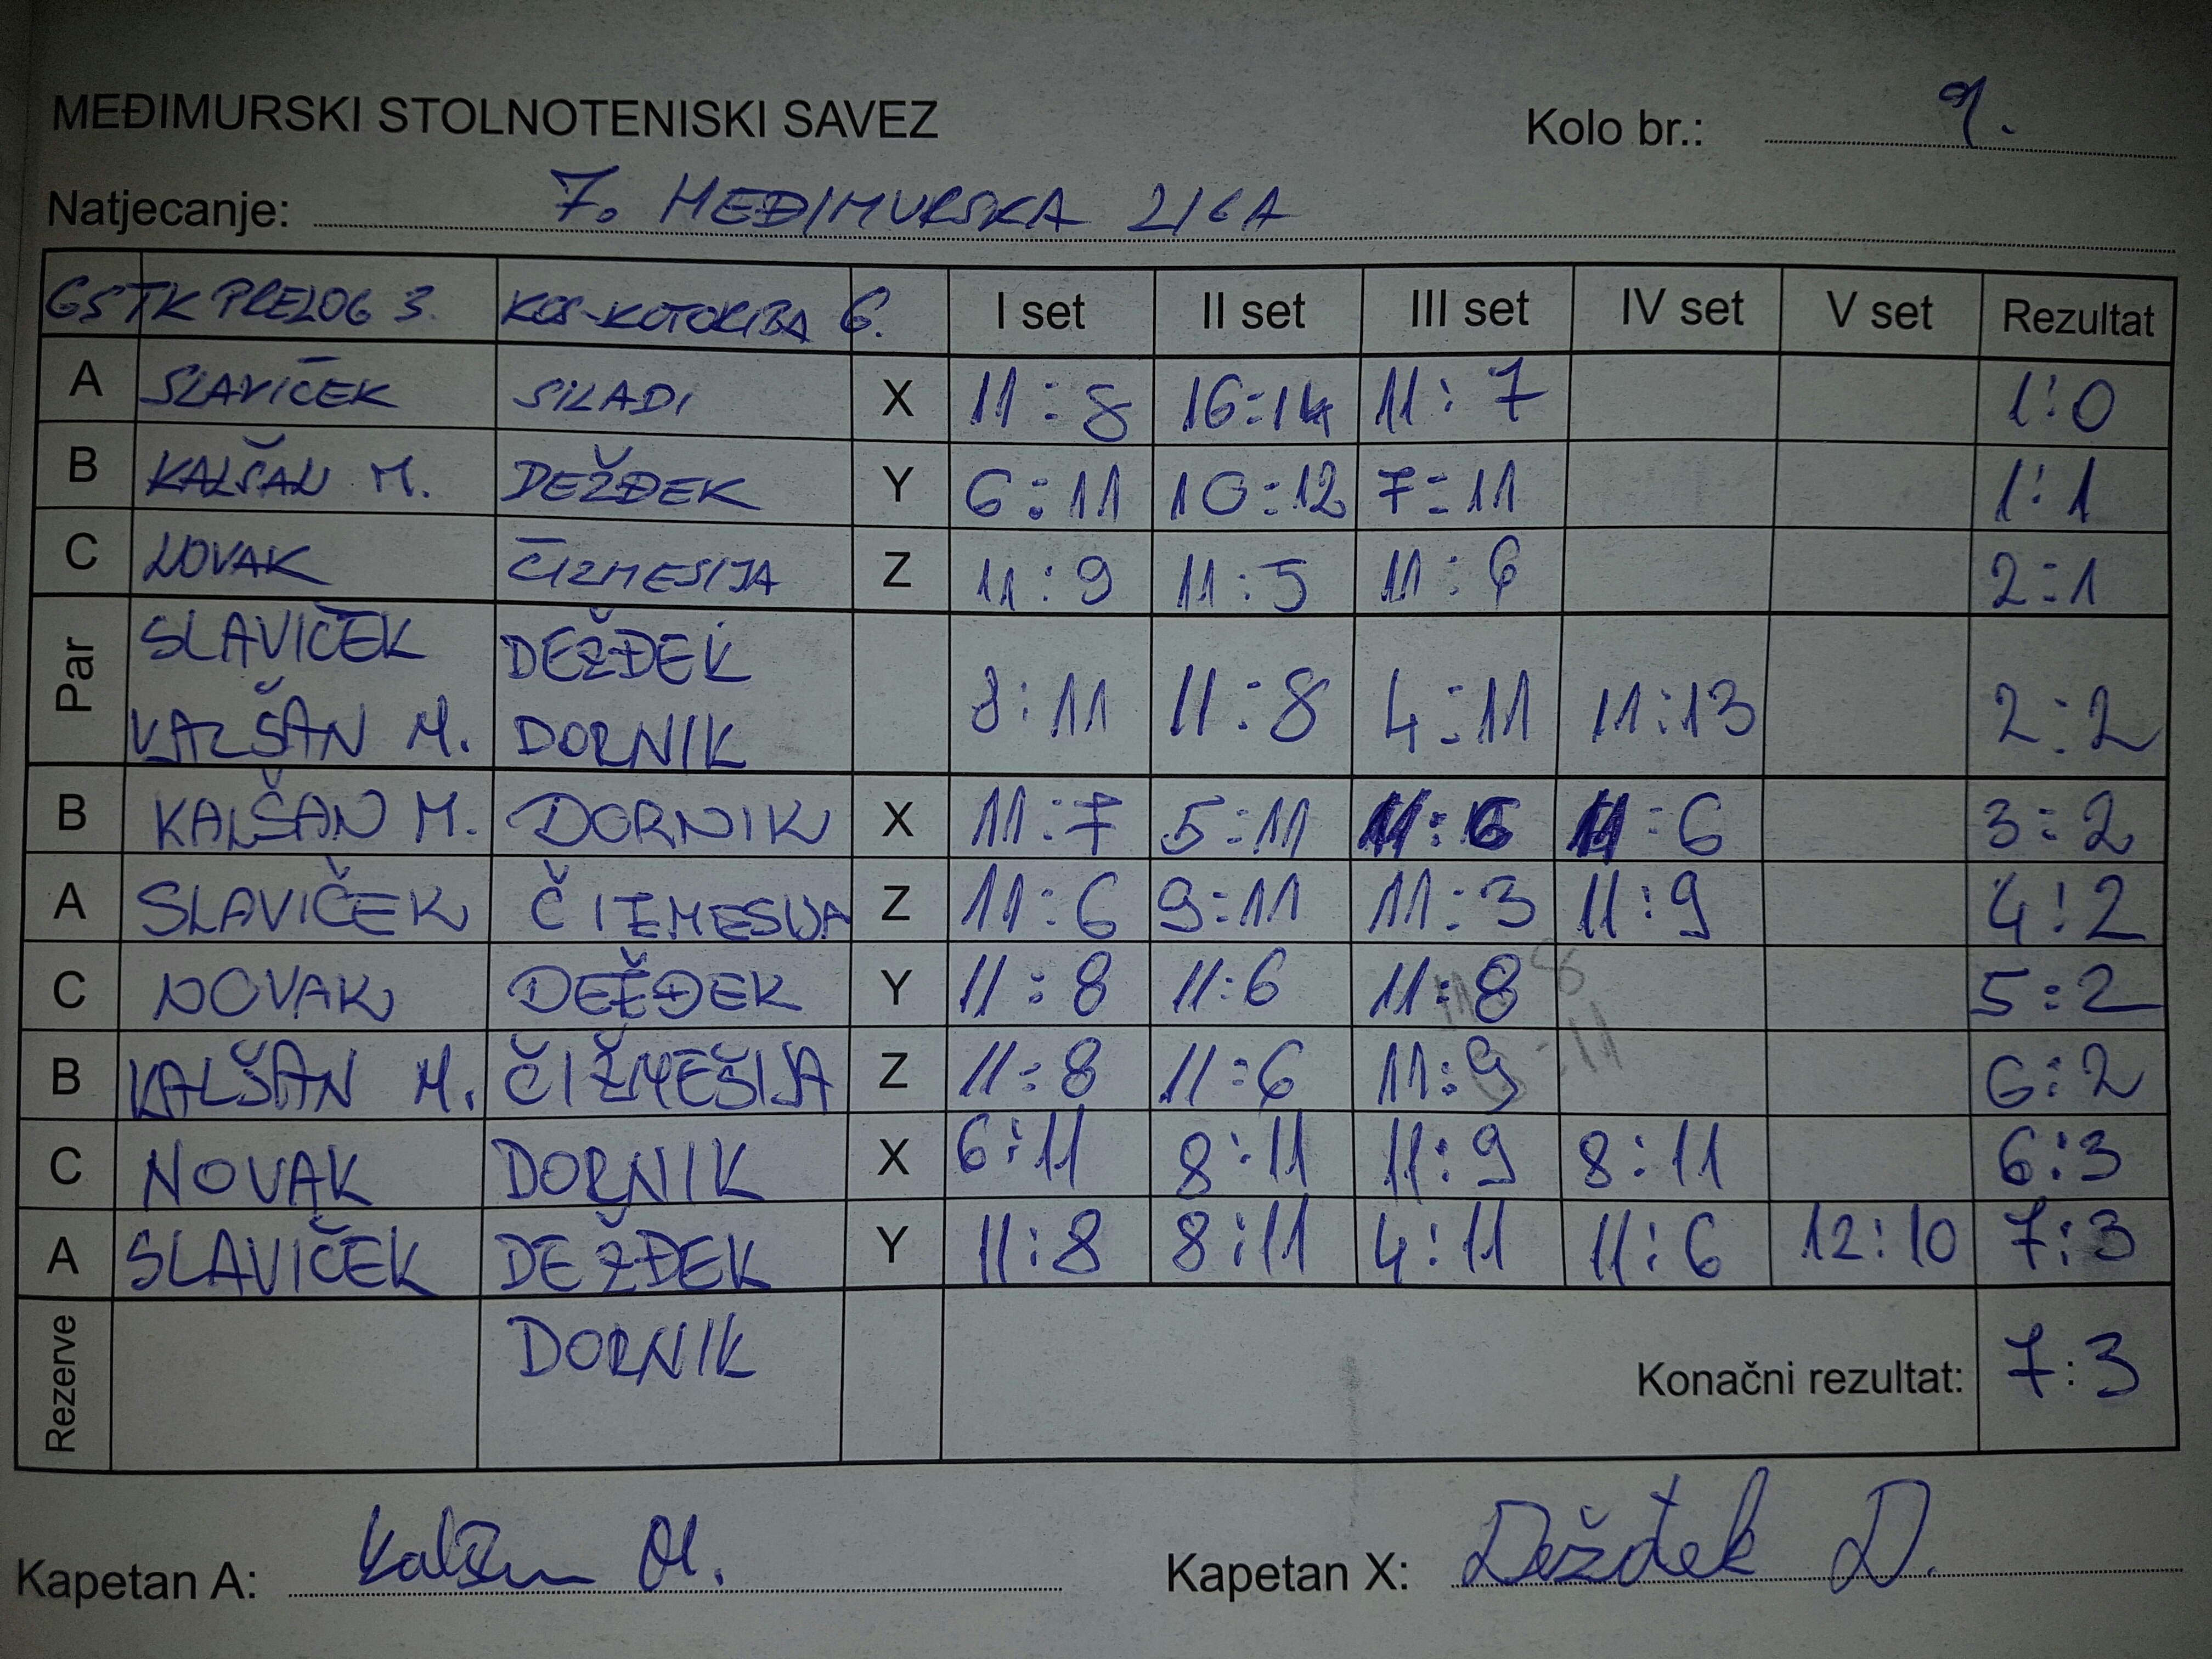 MEĐIMURSKI STOLNOTENISKI SAVEZ Kolo br.: 9.
Natjecanje: 7. MEĐIMURSKA LIGA
GSTK PRELOG 3. KOS-KOTORIBA 6. I set II set III set IV set V set Rezultat
A SLAVIČEK SILADI X 11:8 16:14 11:7 1:0
B KALŠAN M. DEŽĐEK Y 6:11 10:12 7:11 1:1
C NOVAK ČIZMESIJA Z 11:9 11:5 11:6 2:1
Par SLAVIČEK DEŽĐEK
KALŠAN M. DORNIK 8:11 11:8 4:11 11:13 2:2
B KALŠAN M. DORNIK X 11:7 5:11 11:6 11:6 3:2
A SLAVIČEK ČIZMESIJA Z 11:6 9:11 11:3 11:9 4:2
C NOVAK DEŽĐEK Y 11:8 11:6 11:8 5:2
B KALŠAN M. ČIŽMEŠIJA Z 11:8 11:6 11:9 6:2
C NOVAK DORNIK X 6:11 8:11 11:9 8:11 6:3
A SLAVIČEK DEŽĐEK Y 11:8 8:11 4:11 11:6 12:10 7:3
Rezerve DORNIK Konačni rezultat: 7:3
Kapetan A: Kalšan M. Kapetan X: Dežđek D.